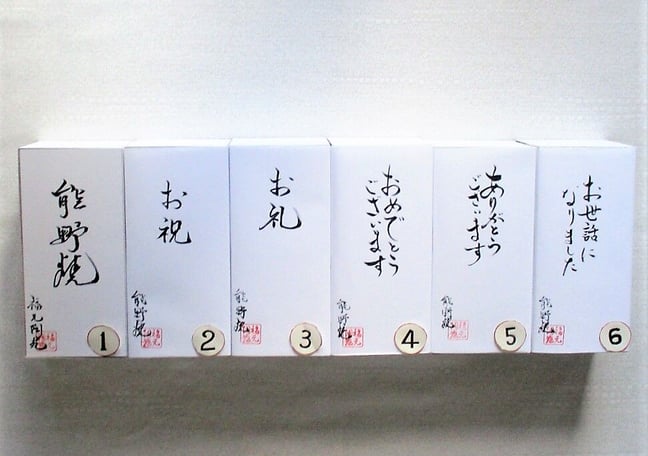 能野焼
福元陶苑
1
お祝
能野焼
2
お礼
能野焼
3
おめでとう
ございます
能野焼
4
ありがとう
ございます
能野焼
5
お世話に
なりました
能野焼
6